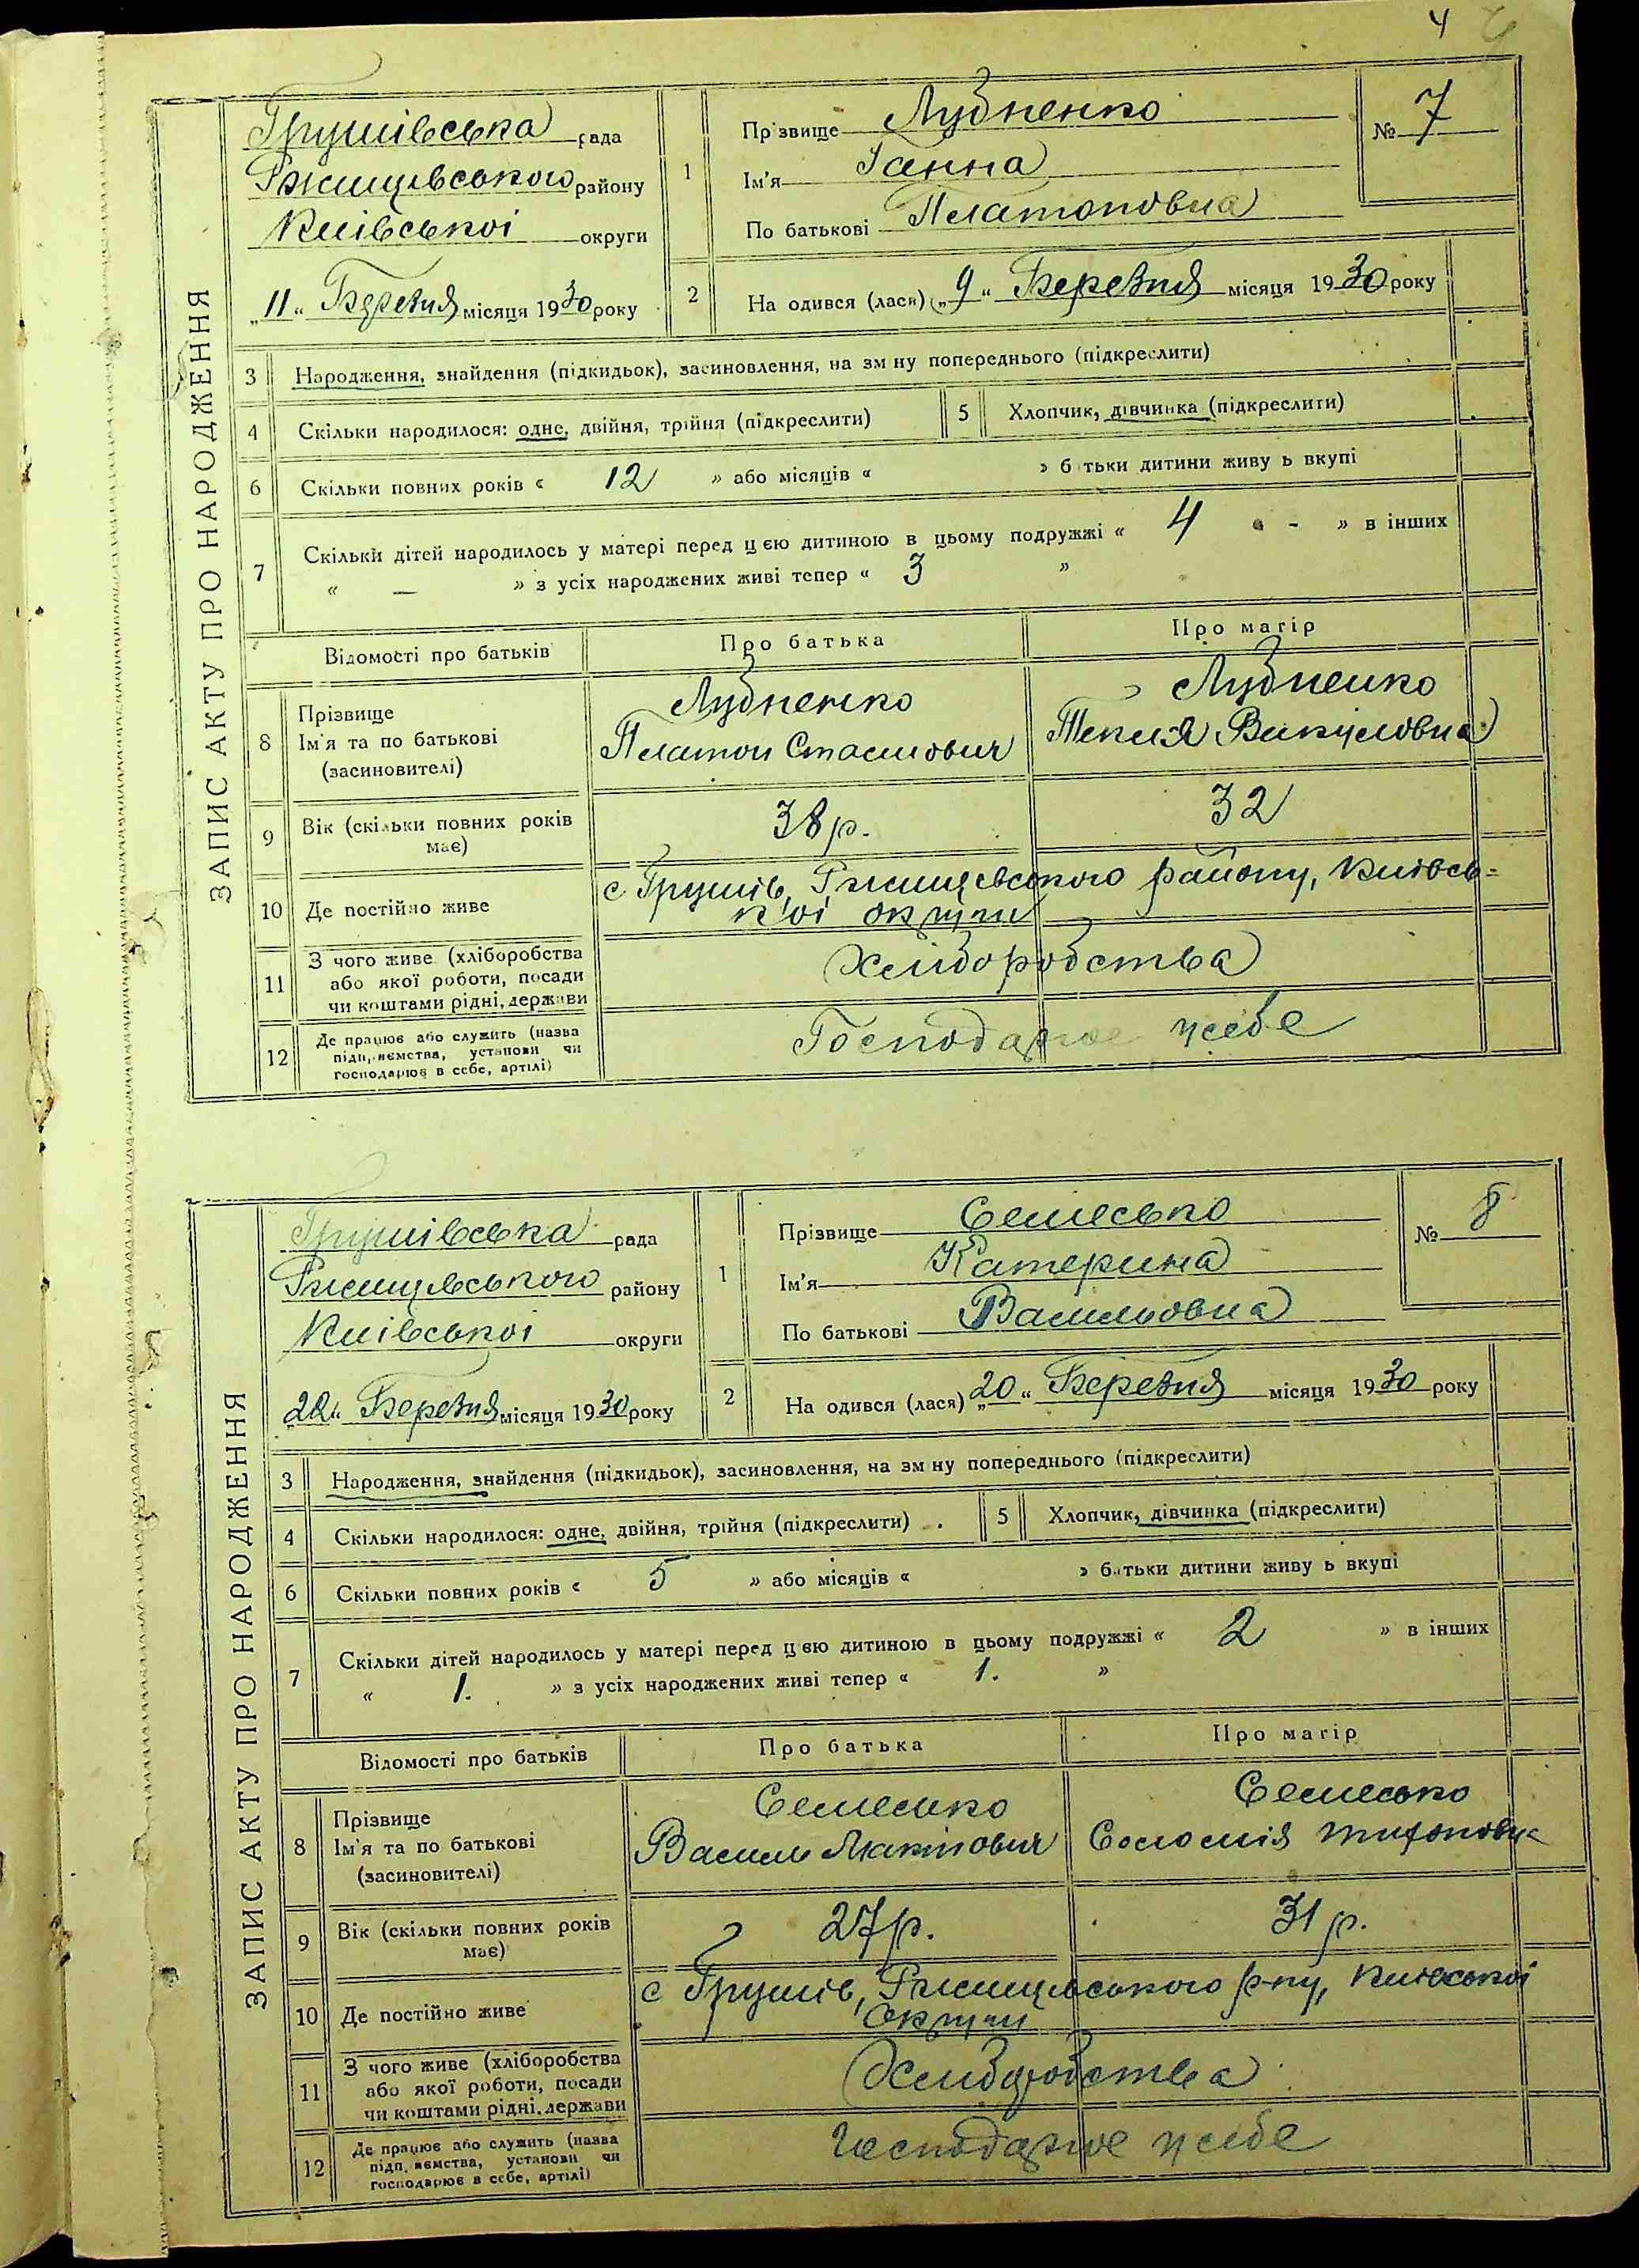 4
ЗАПИС АКТУ ПРО НАРОДЖЕННЯ
Грушівська рада
Ржищівського району
Київської округи
„11“ Березня місяця 1930 року
1
Пр звище Лубненко
Ім'я Ганна
По батькові Платоновна
№ 7
2
На одився (лася) „9“ Березня місяця 1930 року
3 Народження, знайдення (підкидьок), засиновлення, на зм ну попереднього (підкреслити)
4 Скільки народилося: одне, двійня, трійня (підкреслити) 5 Хлопчик, дівчинка (підкреслити)
6 Скільки повних років « 12 » або місяців « » б тьки дитини живу ь вкупі
7 Скільки дітей народилось у матері перед ц єю дитиною в цьому подружжі « 4 « - » в інших
« — » з усіх народжених живі тепер « 3 »
Відомості про батьків Про батька Про матір
8 Прізвище Ім'я та по батькові (засиновителі)
Лубненко Лубненко
Платон Стасиович Текля Викуловна
9 Вік (скільки повних років має) 38 р. 32
10 Де постійно живе с Грушів, Ржищевського району, Київсь=
кої округи
11 З чого живе (хліборобства або якої роботи, посади чи коштами рідні, держави Хліборобства
12 Де працює або служить (назва підп, иємства, установи чи господарює в себе, артілі) Господарює усебе
ЗАПИС АКТУ ПРО НАРОДЖЕННЯ
Грушівська рада
Ржищівського району
Київської округи
„22“ Березня місяця 1930 року
1
Прізвище Семесько
Ім'я Катерина
По батькові Васильовна
№ 8
2
На одився (лася) „20“ Березня місяця 1930 року
3 Народження, знайдення (підкидьок), засиновлення, на зм ну попереднього (підкреслити)
4 Скільки народилося: одне, двійня, трійня (підкреслити) 5 Хлопчик, дівчинка (підкреслити)
6 Скільки повних років « 5 » або місяців « » батьки дитини живу ь вкупі
7 Скільки дітей народилось у матері перед ц єю дитиною в цьому подружжі « 2 » в інших
« 1. » з усіх народжених живі тепер « 1. »
Відомості про батьків Про батька Про матір
8 Прізвище Ім'я та по батькові (засиновителі)
Семесько Семесько
Василь Соломія
9 Вік (скільки повних років має) 27 р. 31 р.
10 Де постійно живе с Грушів, Ржищівського р-ну, Київської
Округи
11 З чого живе (хліборобства або якої роботи, посади чи коштами рідні, держави Хліборобства
12 Де працює або служить (назва підп. иємства, установи чи господарює в себе, артілі) Господарює усебе